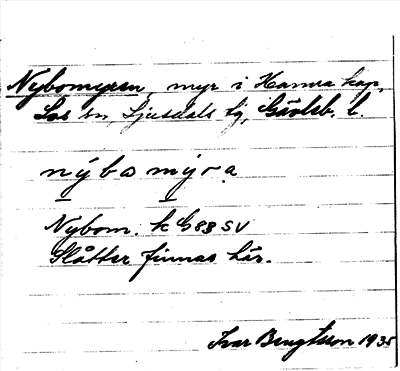 Nybomyren, myr i Hamra kap,
Los sn, Ljusdals tg, Gävleb. l.
nýba mýra
Nybom. k G88 SV
Slåtter finnas här.
Ivar Bengtsson 1935